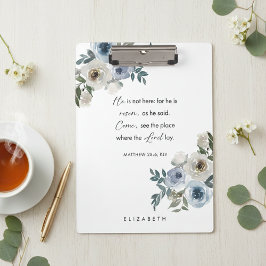 He is not here: for he is
risen, as he said.
Come, see the place
where the Lord lay.
MATTHEW 28:6, KJV
ELIZABETH